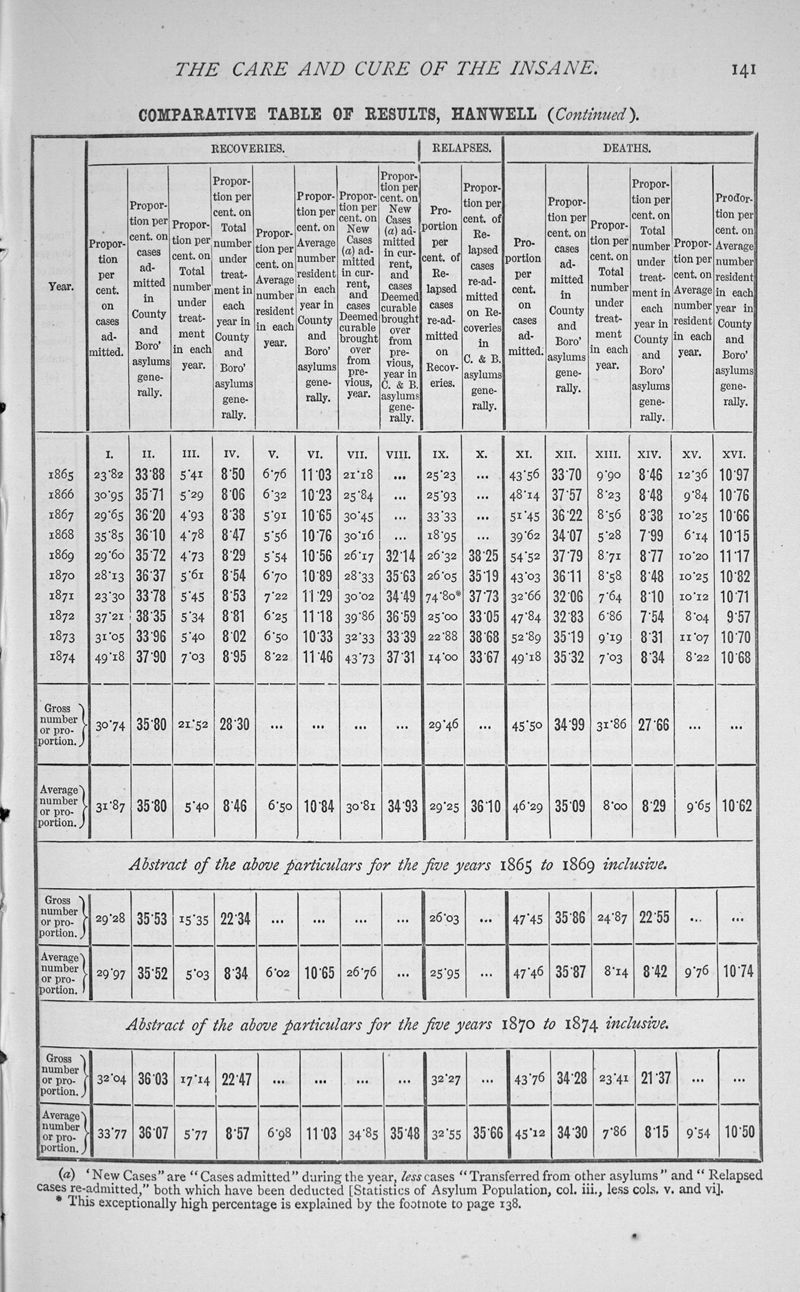 THE CARE AND CURE OF THE INSANE. 141
COMPARATIVE TABLE OF RESULTS, HANWELL (Continued).
RECOVERIES. RELAPSES. DEATHS.
Year.
Proportion per cent. on cases admitted.
Proportion per cent. on cases admitted in County and Boro' asylums generally.
Proportion per cent. on Total number under treatment in each year.
Proportion per cent. on Total number under treatment in each year in County and Boro' asylums generally.
Proportion per cent. on Average number resident in each year.
Proportion per cent. on Average number resident in each year in County and Boro' asylums generally.
Proportion per cent. on New Cases (a) admitted in current, and cases Deemed curable brought over from previous, year.
Proportion per cent. on New Cases (a) admitted in current, and cases Deemed curable brought over from previous, year in C. & B. asylums generally.
Proportion per cent. of Relapsed cases re-admitted on Recoveries.
Proportion per cent. of Relapsed cases re-admitted on Recoveries in C. & B. asylums generally.
Proportion per cent. on cases admitted.
Proportion per cent. on cases admitted in County and Boro' asylums generally.
Proportion per cent. on Total number under treatment in each year.
Proportion per cent. on Total number under treatment in each year in County and Boro' asylums generally.
Proportion per cent. on Average number resident in each year.
Prodortion per cent. on Average number resident in each year in County and Boro' asylums generally.
I. II. III. IV. V. VI. VII. VIII. IX. X. XI. XII. XIII. XIV. XV. XVI.
1865 23·82 33·88 5·41 8·50 6·76 11·03 21·18 ... 25·23 ... 43·56 33·70 9·90 8·46 12·36 10·97
1866 30·95 35·71 5·29 8·06 6·32 10·23 25·84 ... 25·93 ... 48·14 37·57 8·23 8·48 9·84 10·76
1867 29·65 36·20 4·93 8·38 5·91 10·65 30·45 ... 33·33 ... 51·45 36·22 8·56 8·38 10·25 10·66
1868 35·85 36·10 4·78 8·47 5·56 10·76 30·16 ... 18·95 ... 39·62 34·07 5·28 7·99 6·14 10·15
1869 29·60 35·72 4·73 8·29 5·54 10·56 26·17 32·14 26·32 38·25 54·52 37·79 8·71 8·77 10·20 11·17
1870 28·13 36·37 5·61 8·54 6·70 10·89 28·33 35·63 26·05 35·19 43·03 36·11 8·58 8·48 10·25 10·82
1871 23·30 33·78 5·45 8·53 7·22 11·29 30·02 34·49 74·80* 37·73 32·66 32·06 7·64 8·10 10·12 10·71
1872 37·21 38·35 5·34 8·81 6·25 11·18 39·86 36·59 25·00 33·05 47·84 32·83 6·86 7·54 8·04 9·57
1873 31·05 33·96 5·40 8·02 6·50 10·33 32·33 33·39 22·88 38·68 52·89 35·19 9·19 8·31 11·07 10·70
1874 49·18 37·90 7·03 8·95 8·22 11·46 43·73 37·31 14·00 33·67 49·18 35·32 7·03 8·34 8·22 10·68
Gross number or proportion. 30·74 35·80 21·52 28·30 ... ... ... ... 29·46 ... 45·50 34·99 31·86 27·66 ... ...
Average number or proportion. 31·87 35·80 5·40 8·46 6·50 10·84 30·81 34·93 29·25 36·10 46·29 35·09 8·00 8·29 9·65 10·62
Abstract of the above particulars for the five years 1865 to 1869 inclusive.
Gross number or proportion. 29·28 35·53 15·35 22·34 ... ... ... ... 26·03 ... 47·45 35·86 24·87 22·55 ... ...
Average number or proportion. 29·97 35·52 5·03 8·34 6·02 10·65 26·76 ... 25·95 ... 47·46 35·87 8·14 8·42 9·76 10·74
Abstract of the above particulars for the five years 1870 to 1874 inclusive.
Gross number or proportion. 32·04 36·03 17·14 22·47 ... ... ... ... 32·27 ... 43·76 34·28 23·41 21·37 ... ...
Average number or proportion. 33·77 36·07 5·77 8·57 6·98 11·03 34·85 35·48 32·55 35·66 45·12 34·30 7·86 8·15 9·54 10·50
(a) 'New Cases" are "Cases admitted" during the year, less cases "Transferred from other asylums" and "Relapsed
cases re-admitted," both which have been deducted [Statistics of Asylum Population, col. iii., less cols. v. and vi].
* This exceptionally high percentage is explained by the footnote to page 138.